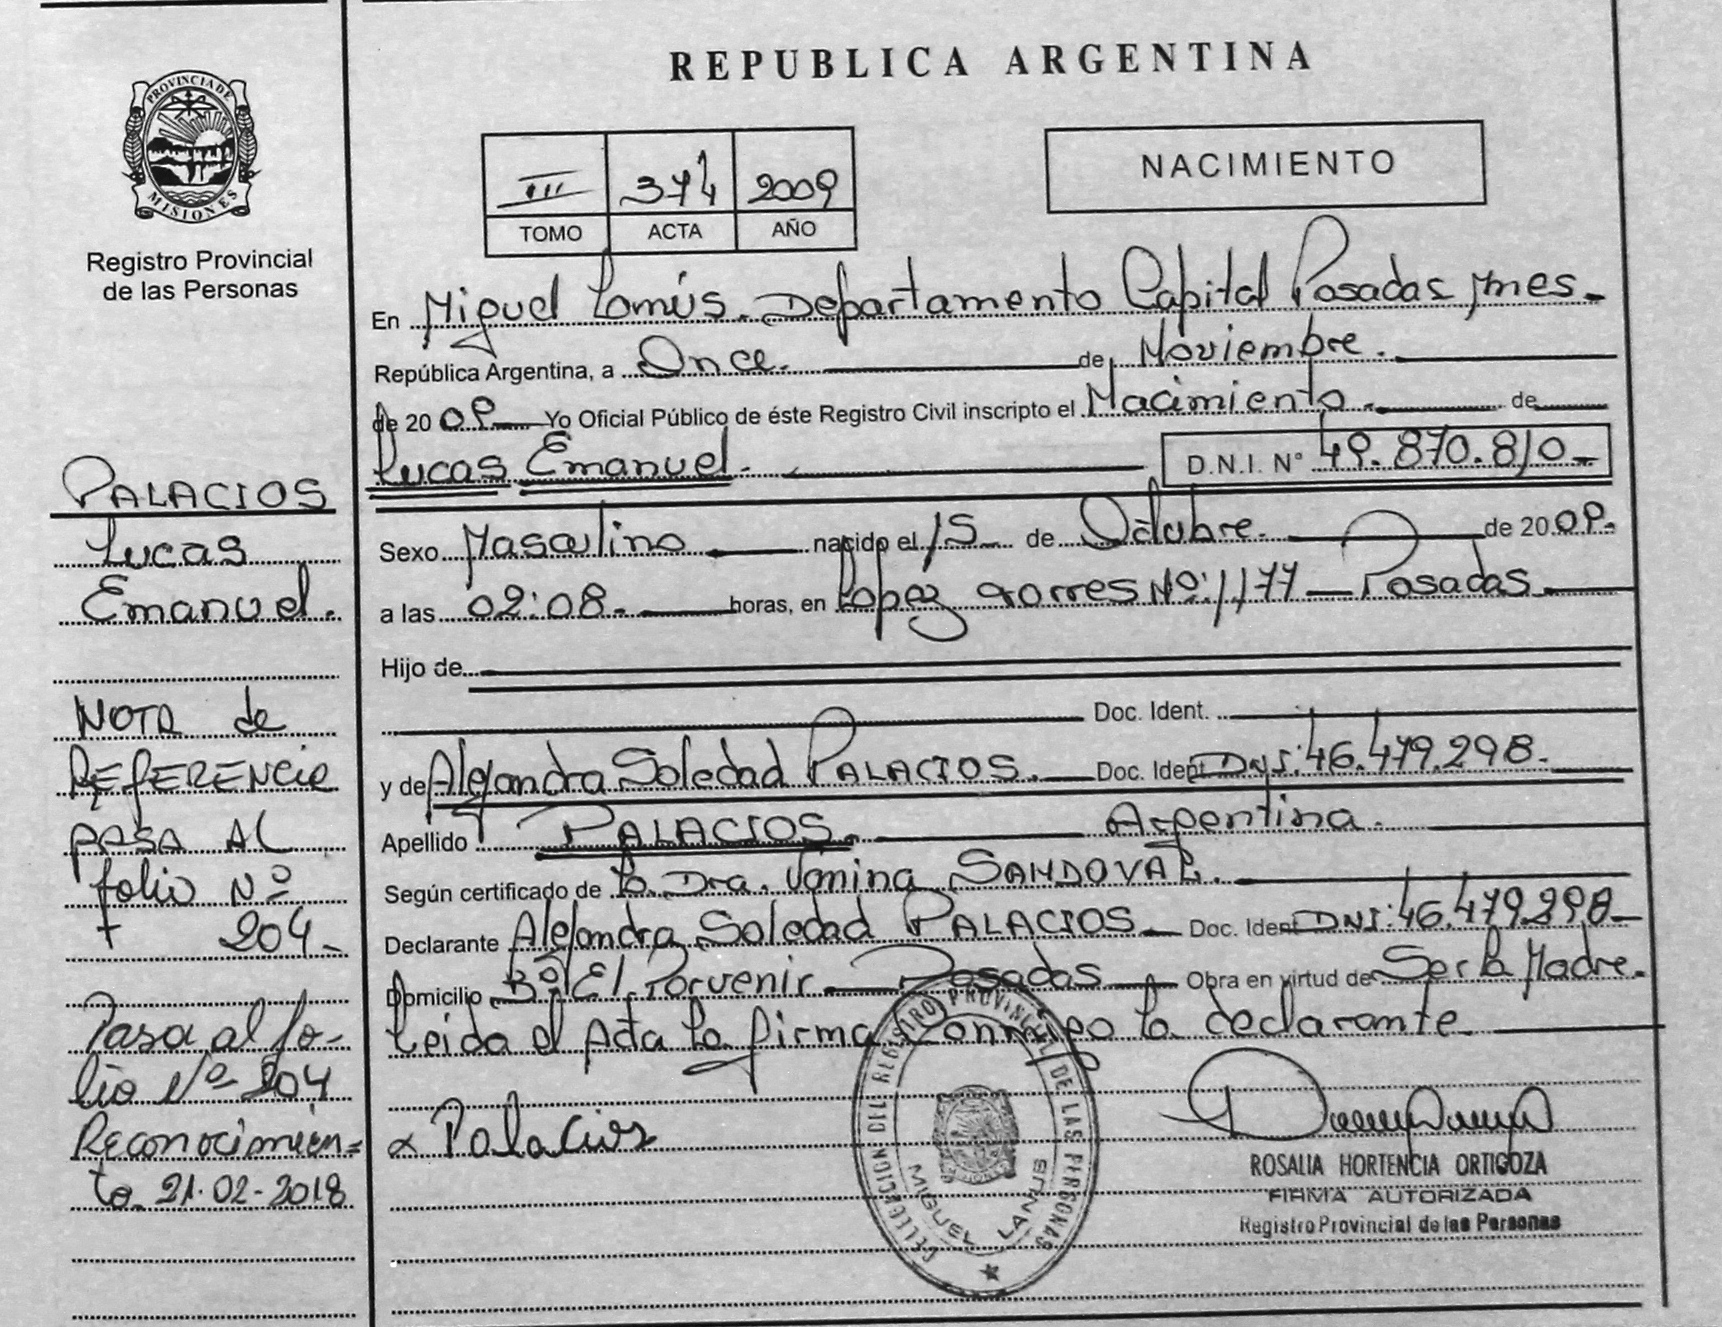 REPUBLICA ARGENTINA
PROVINCIA DE
MISIONES
Registro Provincial
de las Personas
III 374 2009
TOMO ACTA AÑO
NACIMIENTO
En Miguel Lanús. Departamento Capital Posadas, Mnes.
República Argentina, a Once. de Noviembre.
de 20 09. Yo Oficial Público de éste Registro Civil inscripto el Nacimiento. de
Lucas Emanuel. D.N.I. N° 49.870.810.
Sexo Masculino nacido el 15 de Octubre. de 20 09.
a las 02:08. horas, en Lopez Torres Nº: 1177 Posadas.
Hijo de
Doc. Ident.
y de Alejandra Soledad PALACIOS. Doc. Ident. DNI: 46.479.298.
Apellido PALACIOS. Argentina.
Según certificado de La Dra. Vanina SANDOVAL.
Declarante Alejandra Soledad PALACIOS Doc. Ident. DNI: 46.479.298
Domicilio Bº El Porvenir Posadas Obra en virtud de Ser la Madre.
Leida el Acta la firma conmigo la declarante.
x Palacios
DELEGACION DEL REGISTRO PROVINCIAL DE LAS PERSONAS
MIGUEL LANUS
ROSALIA HORTENCIA ORTIGOZA
FIRMA AUTORIZADA
Registro Provincial de las Personas
PALACIOS
Lucas
Emanuel.
NOTA de
REFERENCIA
PASA AL
folio Nº
204
Pasa al fo-
lio Nº 204
Reconocimien=
to. 21.02-2018